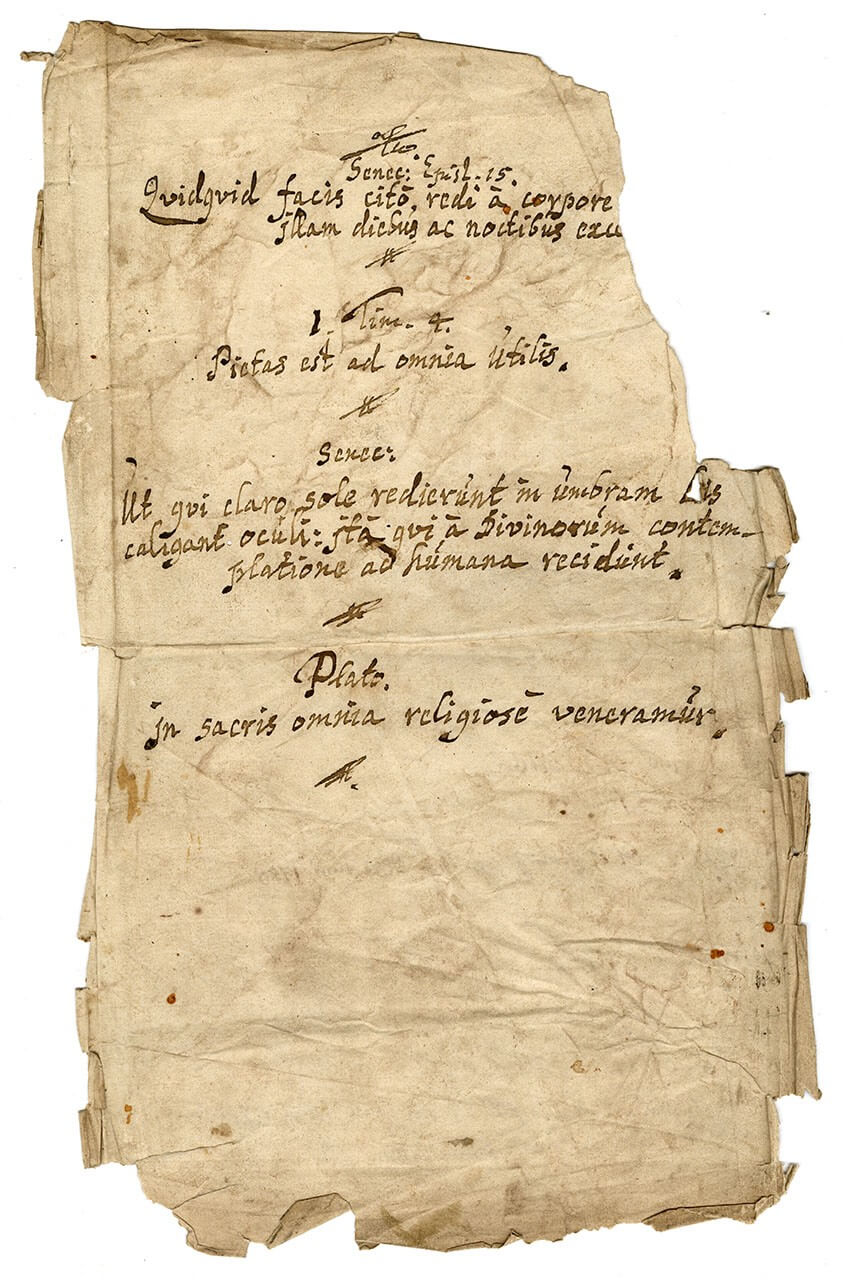 Senec: Epist. 15.
Quidquid facis citò, redi à corpore
illam diebus ac noctibus
1. Tim. 4.
Pietas est ad omnia Utilis.
Senec:
Ut qui claro sole redierunt in umbram his
caligant oculi: ità qui à Divinorum contem-
platione ad humana recidunt.
Plato.
in sacris omnia religiosè veneramur.